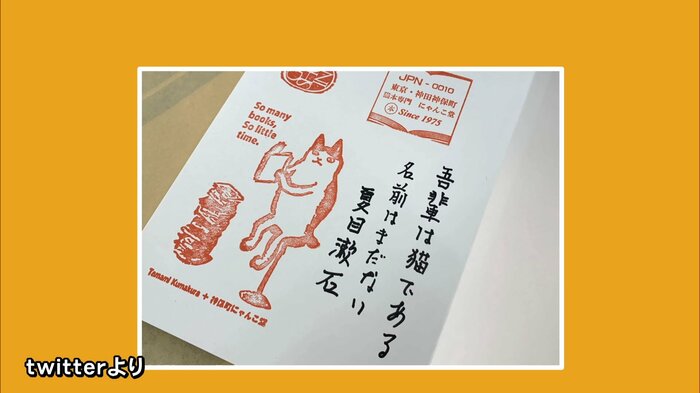 JPN - 0010
東京・神田神保町
猫本専門 にゃんこ堂
Since 1975
So many
books,
So little
time.
吾輩は猫である
名前はまだない
夏目漱石
Tomami Kumakura + 神保町にゃんこ堂
twitterより